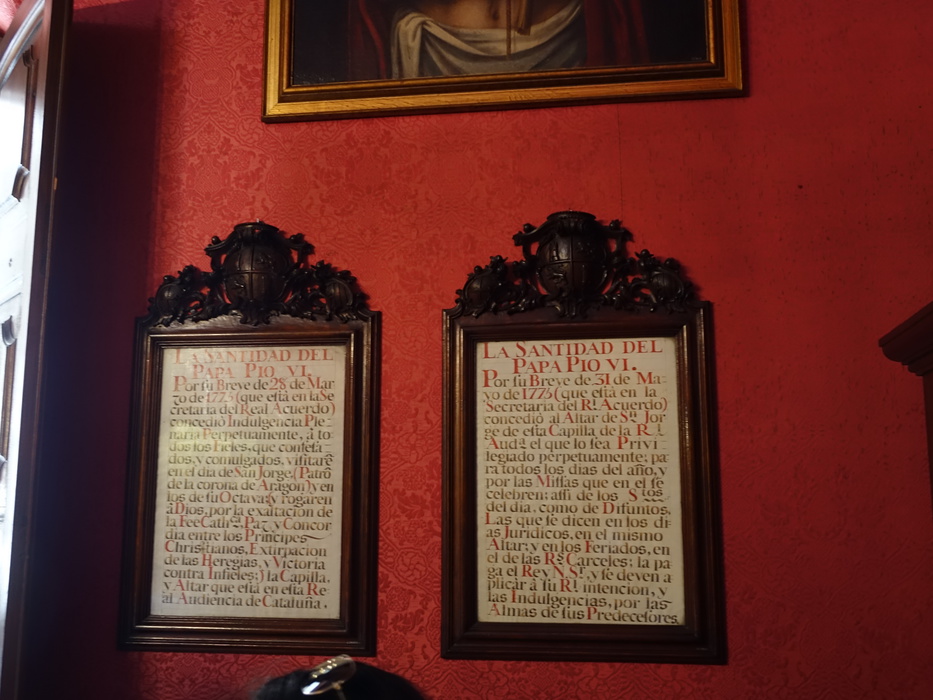 LA SANTIDAD DEL
PAPA PIO VI.
Por ſu Breve de 28 de Mar
zo de 1775 (que eſtà en la Se
cretaria del Real Acuerdo)
concediò Indulgencia Ple-
naria Perpetuamente, à to-
dos los Fieles, que confeſa-
dos, y comulgados, viſitarẽ
en el dia de San Jorge, (Patrõ
de la corona de Aragon) y en
los de ſu Octava; y rogaren
à Dios, por la exaltacion de
la Fee Cathᶜᵃ, Paz, y Concor
dia entre los Principes
Chriſtianos, Extirpacion
de las Heregias, y Victoria
contra Infieles; la Capilla,
y Altar que eſtà en eſta Re
al Audiencia de Cataluña.
LA SANTIDAD DEL
PAPA PIO VI.
Por ſu Breve de 31 de Ma-
yo de 1775 (que eſtà en la
Secretaria del Rˡ Acuerdo)
concediò al Altar de Sⁿ Jor
ge de eſta Capilla de la Rˡ
Audᵃ el que lo ſea Privi-
legiado perpetuamente; pa-
ra todos los dias del año, y
por las Miſſas que en el ſe
celebren; aſſi de los Sᵗᵒˢ
del dia, como de Difuntos,
Las que ſe dicen en los di-
as Juridicos, en el mismo
Altar; y en los Feriados, en
el de las Rˢ Carceles; la pa
ga el Rey N. Sʳ, y ſe deven a
plicar à ſu Rˡ intencion, y
las Indulgencias, por las
Almas de ſus Predeceſores.